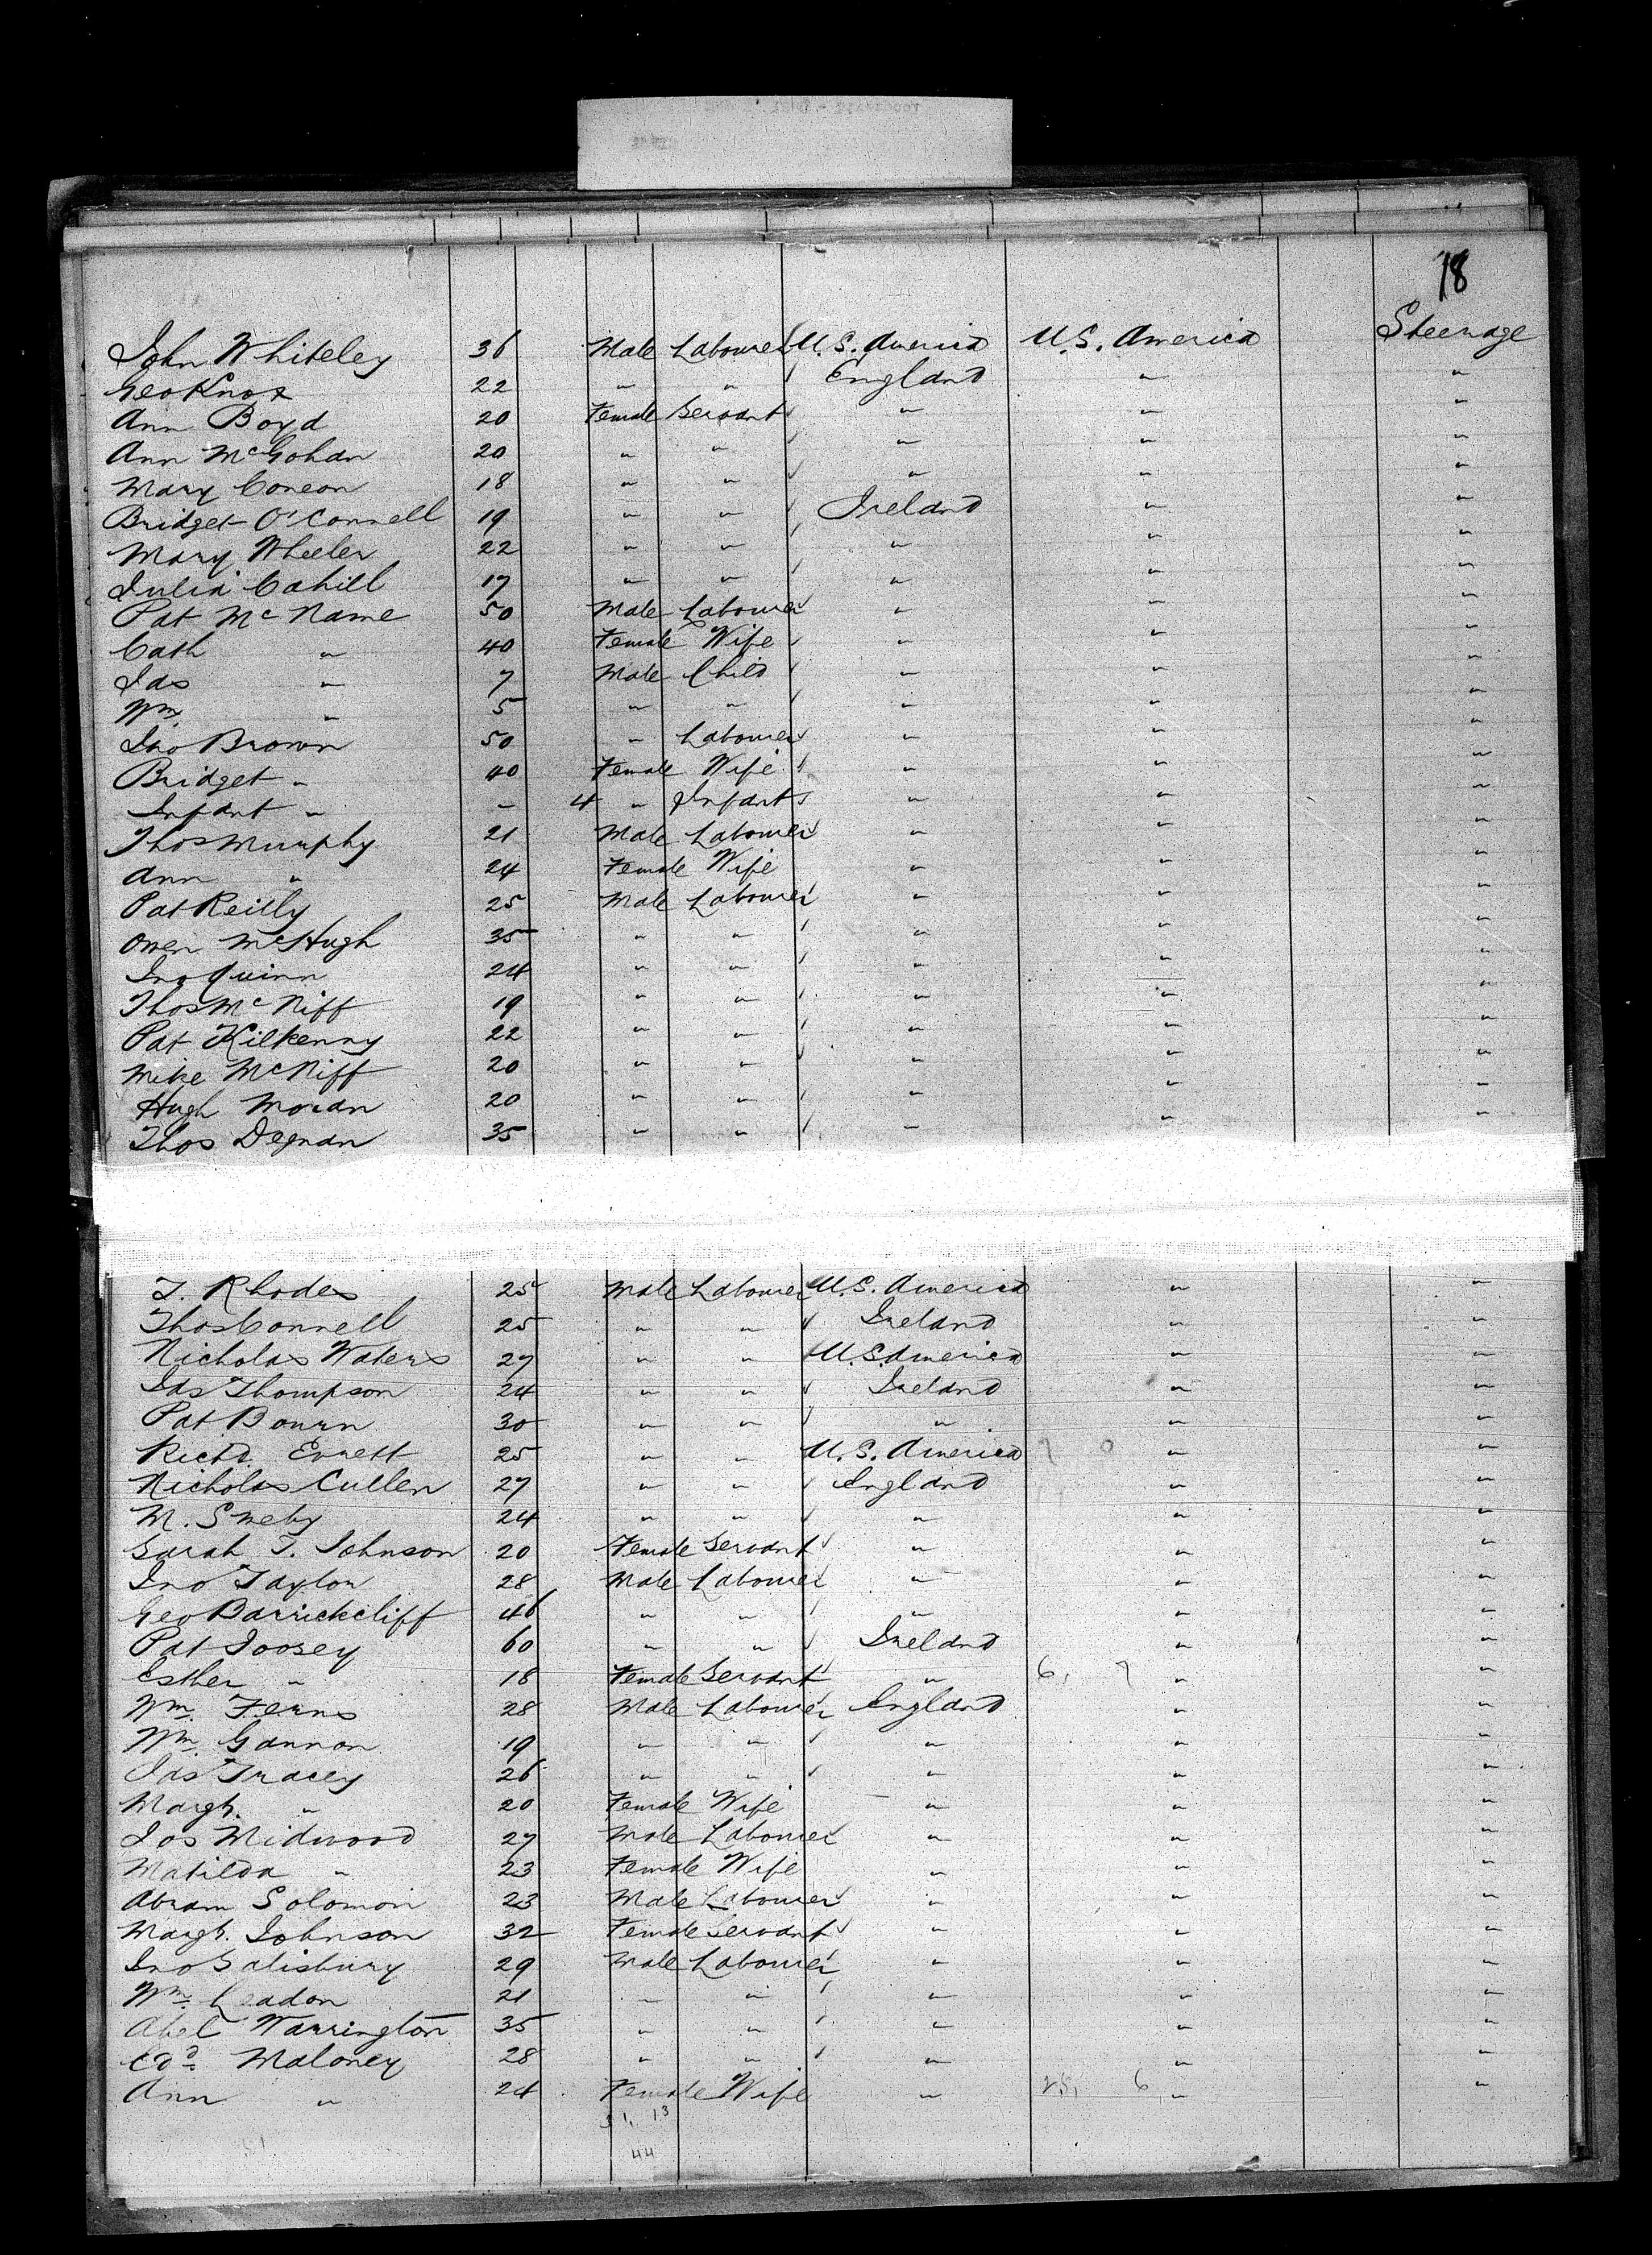 18
John Whiteley 36 Male Labourer U.S. America U.S. America Steerage
Geo Knox 22 " " England " "
Ann Boyd 20 Female Servant " " "
Ann McGohan 20 " " " " "
Mary 18 " " " " "
Bridget O'Connell 19 " " Ireland " "
Mary Wheeler 22 " " " " "
Julia Cahill 17 " " " " "
Pat McName 50 Male Labourer " " "
Cath " 40 Female Wife " " "
Jas " 7 Male Child " " "
Wm. " 5 " " " " "
Jno Brown 50 " Labourer " " "
Bridget " 40 Female Wife " " "
Infant " - 4 " Infant " " "
Thos Murphy 21 Male Labourer " " "
Ann " 24 Female Wife " " "
Pat Reilly 25 Male Labourer " " "
Owen McHugh 35 " " " " "
Jno Quinn 24 " " " " "
Thos McNiff 19 " " " " "
Pat Kilkenny 22 " " " " "
Mike McNiff 20 " " " " "
Hugh Moran 20 " " " " "
Thos Degnan 35 " " " " "
T. Rhodes 25 Male Labourer U.S. America " "
Thos Connell 25 " " Ireland " "
Nicholas Waters 27 " " U.S. America " "
Jas Thompson 24 " " Ireland " "
Pat Bourn 30 " " " " "
Richd. Evnett 25 " " U.S. America " "
Nicholas Cullen 27 " " England " "
M. 24 " " " " "
Sarah T. Johnson 20 Female Servant " " "
Jno Taylor 28 Male Labourer " " "
Geo Barrickcliff 46 " " " " "
Pat Joosey 60 " " Ireland " "
Esther " 18 Female Servant " 6, 7 " "
Wm. Ferns 28 Male Labourer England " "
Wm. Gannon 19 " " " " "
Jas Tracey 26 " " " " "
Margt. " 20 Female Wife " " "
Jos Midwood 27 Male Labourer " " "
Matilda " 23 Female Wife " " "
Abram Solomon 23 Male Labourer " " "
Margt. Johnson 32 Female Servant " " "
Jno Salisbury 29 Male Labourer " " "
Wm. Leadon 21 " " " " "
Abel Warrington 35 " " " " "
Edd. Maloney 28 " " " " "
Ann " 24 Female Wife " " "
31, 13
44